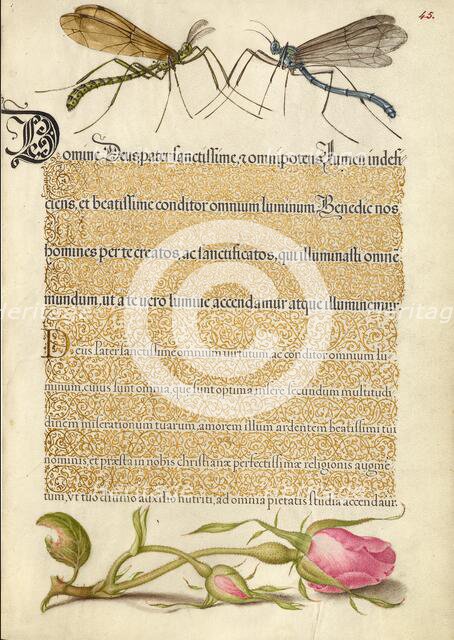 45.
Domine Deus pater sanctissime, & omnipotens Lumen indefi
ciens, et beatissime conditor omnium luminum Benedic nos
homines per te creatos, ac sanctificatos, qui illuminasti omnē
mundum, ut a te vero lumine accendamur atque illuminemur.
Deus Pater sanctissime omnium virtutum, ac conditor omnium lu
minum, cuius sunt omnia, que sunt optima insere secundum multitudi
dinem miserationum tuarum, amorem illum ardentem beatissimi tui
nominis et præsta in nobis christianæ perfectissimæ religionis augmē
tum, vt tuo diuino auxilio nutriti, ad omnia pietatis studia accendaur.